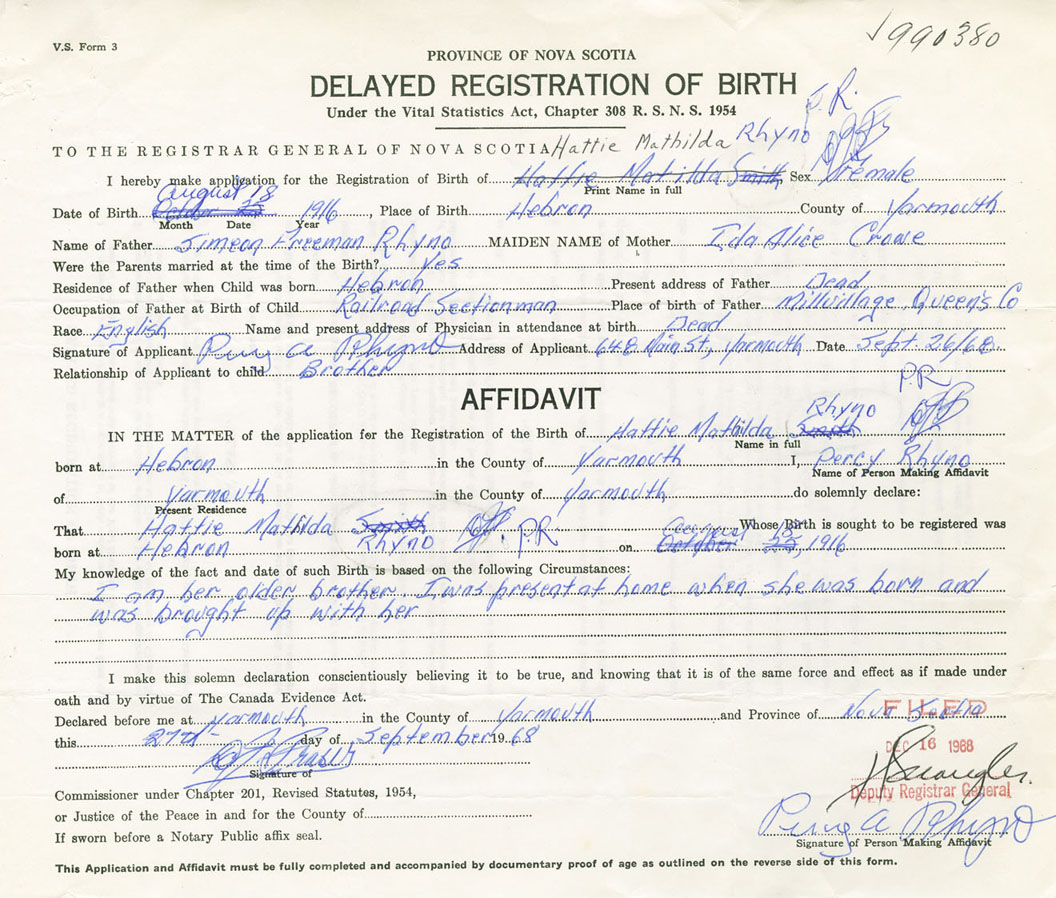 V.S. Form 3
990380
PROVINCE OF NOVA SCOTIA
DELAYED REGISTRATION OF BIRTH
Under the Vital Statistics Act, Chapter 308 R. S. N. S. 1954
P.R.
TO THE REGISTRAR GENERAL OF NOVA SCOTIA Hattie Mathilda Rhyno
I hereby make application for the Registration of Birth of Hattie Matilda Smith Sex Female
Print Name in full
August 18
Date of Birth October 25 1916, Place of Birth Hebron County of Yarmouth
Month Date Year
Name of Father Simeon Freeman Rhyno MAIDEN NAME of Mother Ida Alice Crowe
Were the Parents married at the time of the Birth? Yes
Residence of Father when Child was born Hebron Present address of Father Dead
Occupation of Father at Birth of Child Railroad Sectionman Place of birth of Father Millvillage Queen's Co
Race English Name and present address of Physician in attendance at birth Dead
Signature of Applicant Percy A Rhyno Address of Applicant 648 Main St, Yarmouth Date Sept. 26/68
Relationship of Applicant to child Brother
P.R
AFFIDAVIT
Rhyno
IN THE MATTER of the application for the Registration of the Birth of Hattie Mathilda Smith
Name in full
born at Hebron in the County of Yarmouth I, Percy Rhyno
Name of Person Making Affidavit
of Yarmouth in the County of Yarmouth do solemnly declare:
Present Residence
That Hattie Mathilda Smith Rhyno P.R August 18 Whose Birth is sought to be registered was
born at Hebron on October 25, 1916
My knowledge of the fact and date of such Birth is based on the following Circumstances:
I am her older brother, I was present at home when she was born and
was brought up with her
I make this solemn declaration conscientiously believing it to be true, and knowing that it is of the same force and effect as if made under
oath and by virtue of The Canada Evidence Act.
Declared before me at Yarmouth in the County of Yarmouth and Province of Nova Scotia
FILED
this 27th day of September 1968
DEC 16 1968
Signature of
Deputy Registrar General
Commissioner under Chapter 201, Revised Statutes, 1954,
or Justice of the Peace in and for the County of
Percy A Rhyno
If sworn before a Notary Public affix seal.
Signature of Person Making Affidavit
This Application and Affidavit must be fully completed and accompanied by documentary proof of age as outlined on the reverse side of this form.